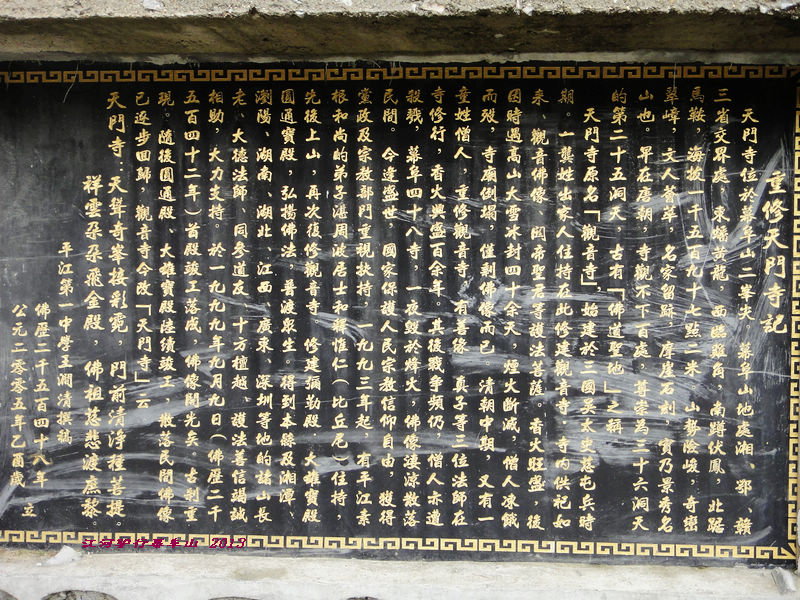 重修天門寺記
天門寺位於幕阜山二峯尖。幕阜山地處湘、鄂、贛
三省交界處，東蟠黃龍，西臨雞角，南蹲伏鳳，北踞
馬鞍，海拔一千五百九十七點二米。山勢險峻，奇巒
聳嶂，文人薈萃，名家留跡，摩崖石刻，實乃景秀名
山也。早在唐朝，寺觀不下百處，尊崇為三十六洞天
的第二十五洞天，古有「佛道聖地」之稱。
天門寺原名「觀音寺」，始建於三國吳太史慈屯兵時
期。一龔姓出家人住持在此修建觀音寺，寺內供祀如
來、觀音佛像、關帝聖君等護法菩薩。香火旺盛，後
因時遇高山大雪冰封四十余天，煙火斷滅，僧人凍餓
而歿，寺廟倒塌，僅剩佛像而已。清朝中期，又有一
童姓僧人，重修觀音寺，有善後、真子等三位法師在
寺修行，香火興盛百余年。其後戰爭頻仍，僧人亦遭
殺戮，幕阜四十八寺，一夜毀於烽火，佛像淒涼散落
民間。今逢盛世，國家保護人民宗教信仰自由，獲得
黨政及宗教部門重視扶持，一九九三年起，有平江素
根和尚的弟子湛周波居士和釋惟仁（比丘尼）住持，
先後上山，再次復修觀音寺，修建彌勒殿，大雄寶殿
圓通寶殿，弘揚佛法，普渡眾生。得到本縣及湘潭、
瀏陽、湖南、湖北、江西、廣東、深圳等地的諸山長
老、大德法師、同參道友、十方檀越、護法善信竭誠
相助，大力支持。於一九九九年九月九日（佛歷二千
五百四十二年）首殿竣工落成，佛像開光矣。古刹重
現。隨後圓通殿、大雄寶殿陸續竣工，散落民間佛像
已逐步回歸，觀音寺今改「天門寺」云
天門寺，天聳奇峯接彩霓，門前清淨種菩提。
祥雲朵朵飛金殿，佛祖慈悲渡庶黎。
平江第一中學王澗清撰稿
佛歷二千五百四十八年
公元二零零五年乙酉歲 立
2013